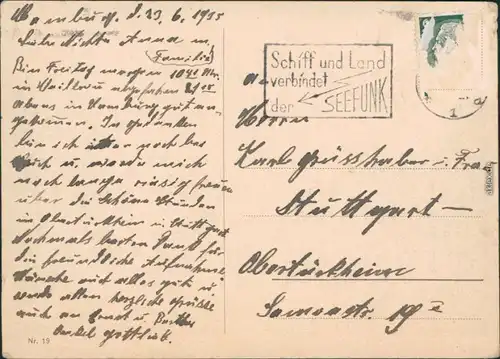 Hamburg, d. 23. 6. 1935
Liebe Nichte Anna u.
Familie!
Bin Freitag morgen 10 40 Uhr
in abgefahren 21 08
abens in Hamburg gut an-
gekommen. In Gedanken
bin ich immer noch bei
Euch u. werde mich
noch lange riesig freuen
über die schöne Stunden
in Obertückheim u. Stuttgart
Nochmals besten Dank für
die freundliche Aufnahme
Wünsche euch alles gute u.
sende allen herzliche Grüsse
auch an Ernst u.
Onkel Gottlieb.
Nr. 19
Schiff und Land
verbindet
der SEEFUNK
an
Herrn
Karl Grüsshaber u. Fra
Stuttgart —
Obertückheim
19 I